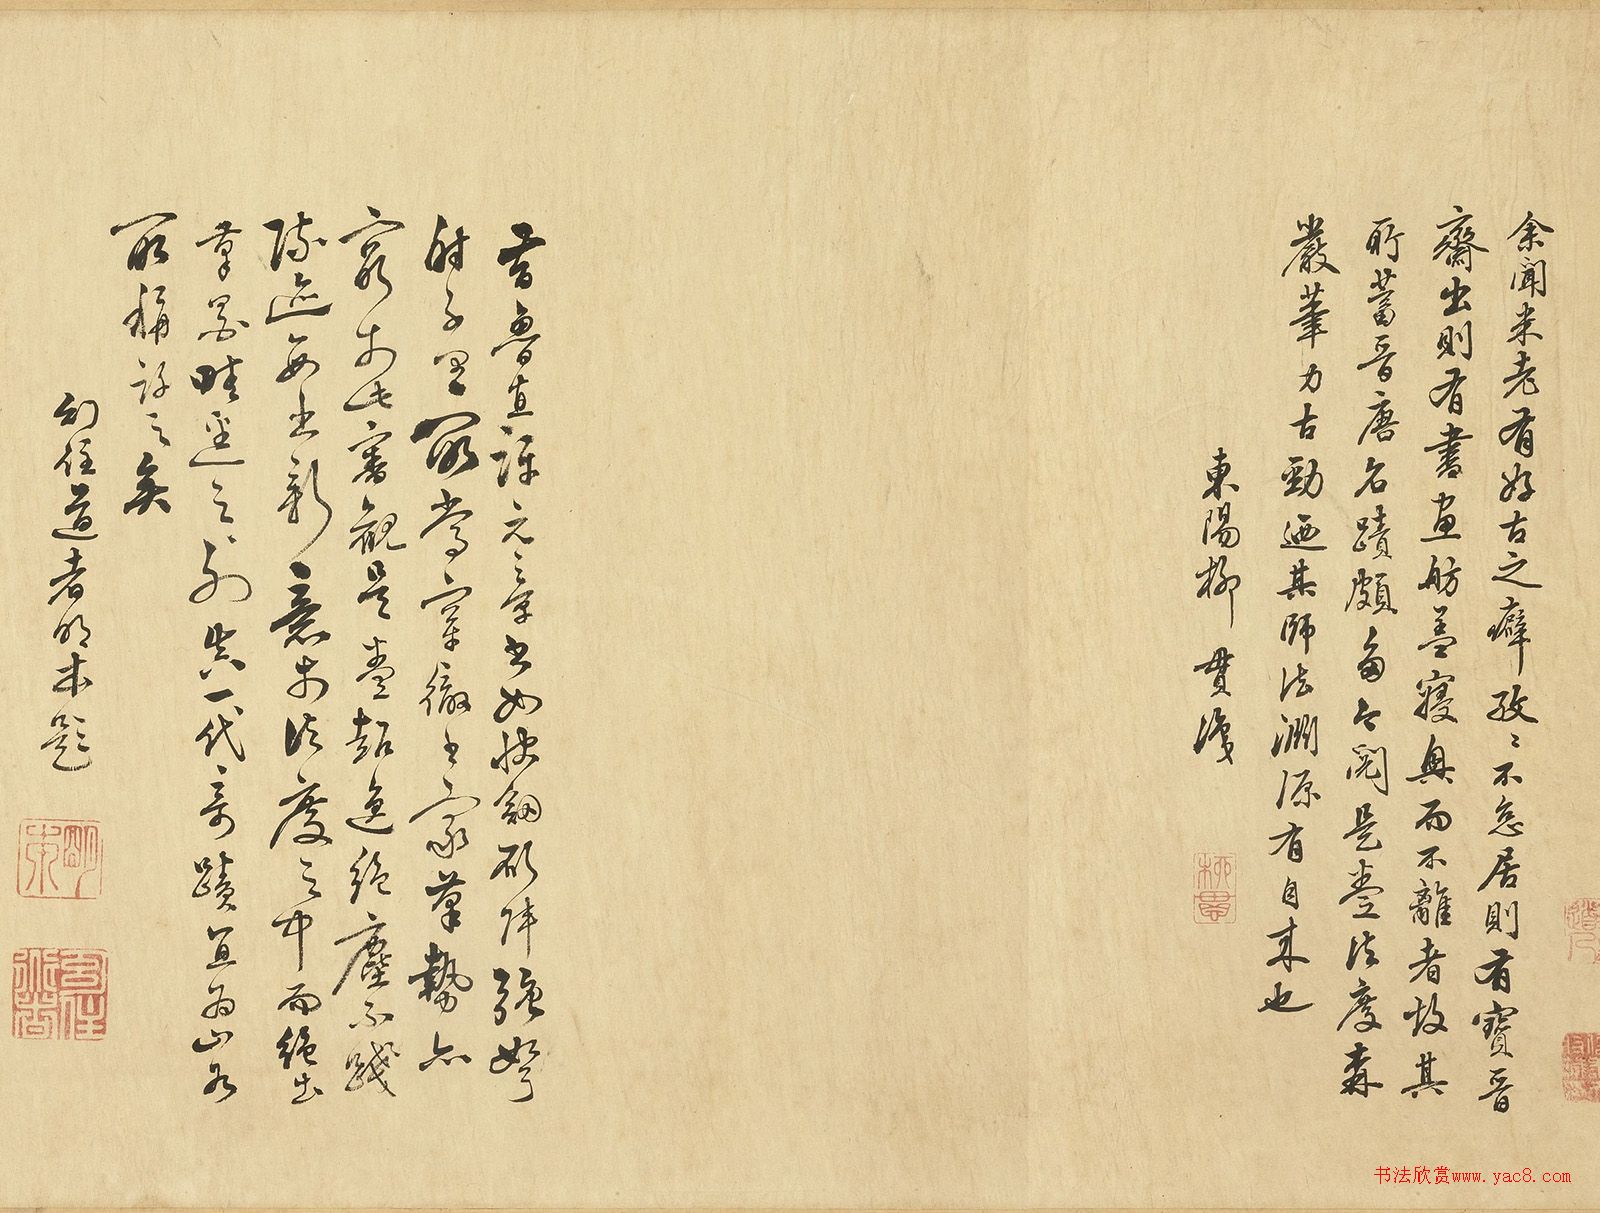 余聞米老有好古之癖孜〻不怠居則有寶晉
齋出則有書畫舫蓋寢興而不離者故其
所蓄晉唐名蹟頗多今閱是卷法度森
嚴筆力古勁迺其師法淵源有自來也
東陽柳貫識
柳貫
昔魯直評元章書如快劍斫陣強弩
射千里所當穿徹書家筆勢亦
窮於此審觀是卷超逸絕塵不踐
陳迹每出新意於法度之中而絕出
筆墨畦逕之外真一代奇蹟宜為山谷
所稱許之矣
幻住道者明本題
明本
幻住
书法欣赏www.yac8.com